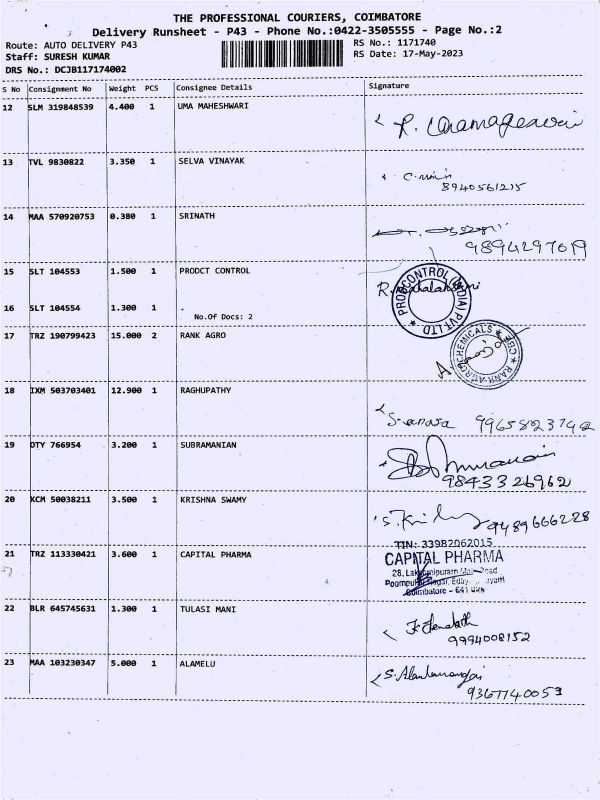 THE PROFESSIONAL COURIERS, COIMBATORE
Delivery Runsheet - P43 - Phone No.:0422-3505555 - Page No.:2
Route: AUTO DELIVERY P43
Staff: SURESH KUMAR
DRS No.: DCJB117174002
RS No.: 1171740
RS Date: 17-May-2023
S No Consignment No Weight PCS Consignee Details Signature
12 SLM 319848539 4.400 1 UMA MAHESHWARI
13 TVL 9830822 3.350 1 SELVA VINAYAK
8940561215
14 MAA 570920753 0.380 1 SRINATH
9894297019
15 SLT 104553 1.500 1 PRODCT CONTROL
PRODCONTROL (INDIA) PVT LTD
16 SLT 104554 1.300 1
No.Of Docs: 2
17 TRZ 190799423 15.000 2 RANK AGRO
RANK AGROCHEMICALS CBE
18 IXM 503703401 12.900 1 RAGHUPATHY
19 OTY 766954 3.200 1 SUBRAMANIAN
9843326962
20 KCM 50038211 3.500 1 KRISHNA SWAMY
9489666228
21 TRZ 113330421 3.600 1 CAPITAL PHARMA
TIN: 33982062015
CAPITAL PHARMA
28, Road
Nagar,
Coimbatore - 641
22 BLR 645745631 1.300 1 TULASI MANI
9994008152
23 MAA 103230347 5.000 1 ALAMELU
9367740053